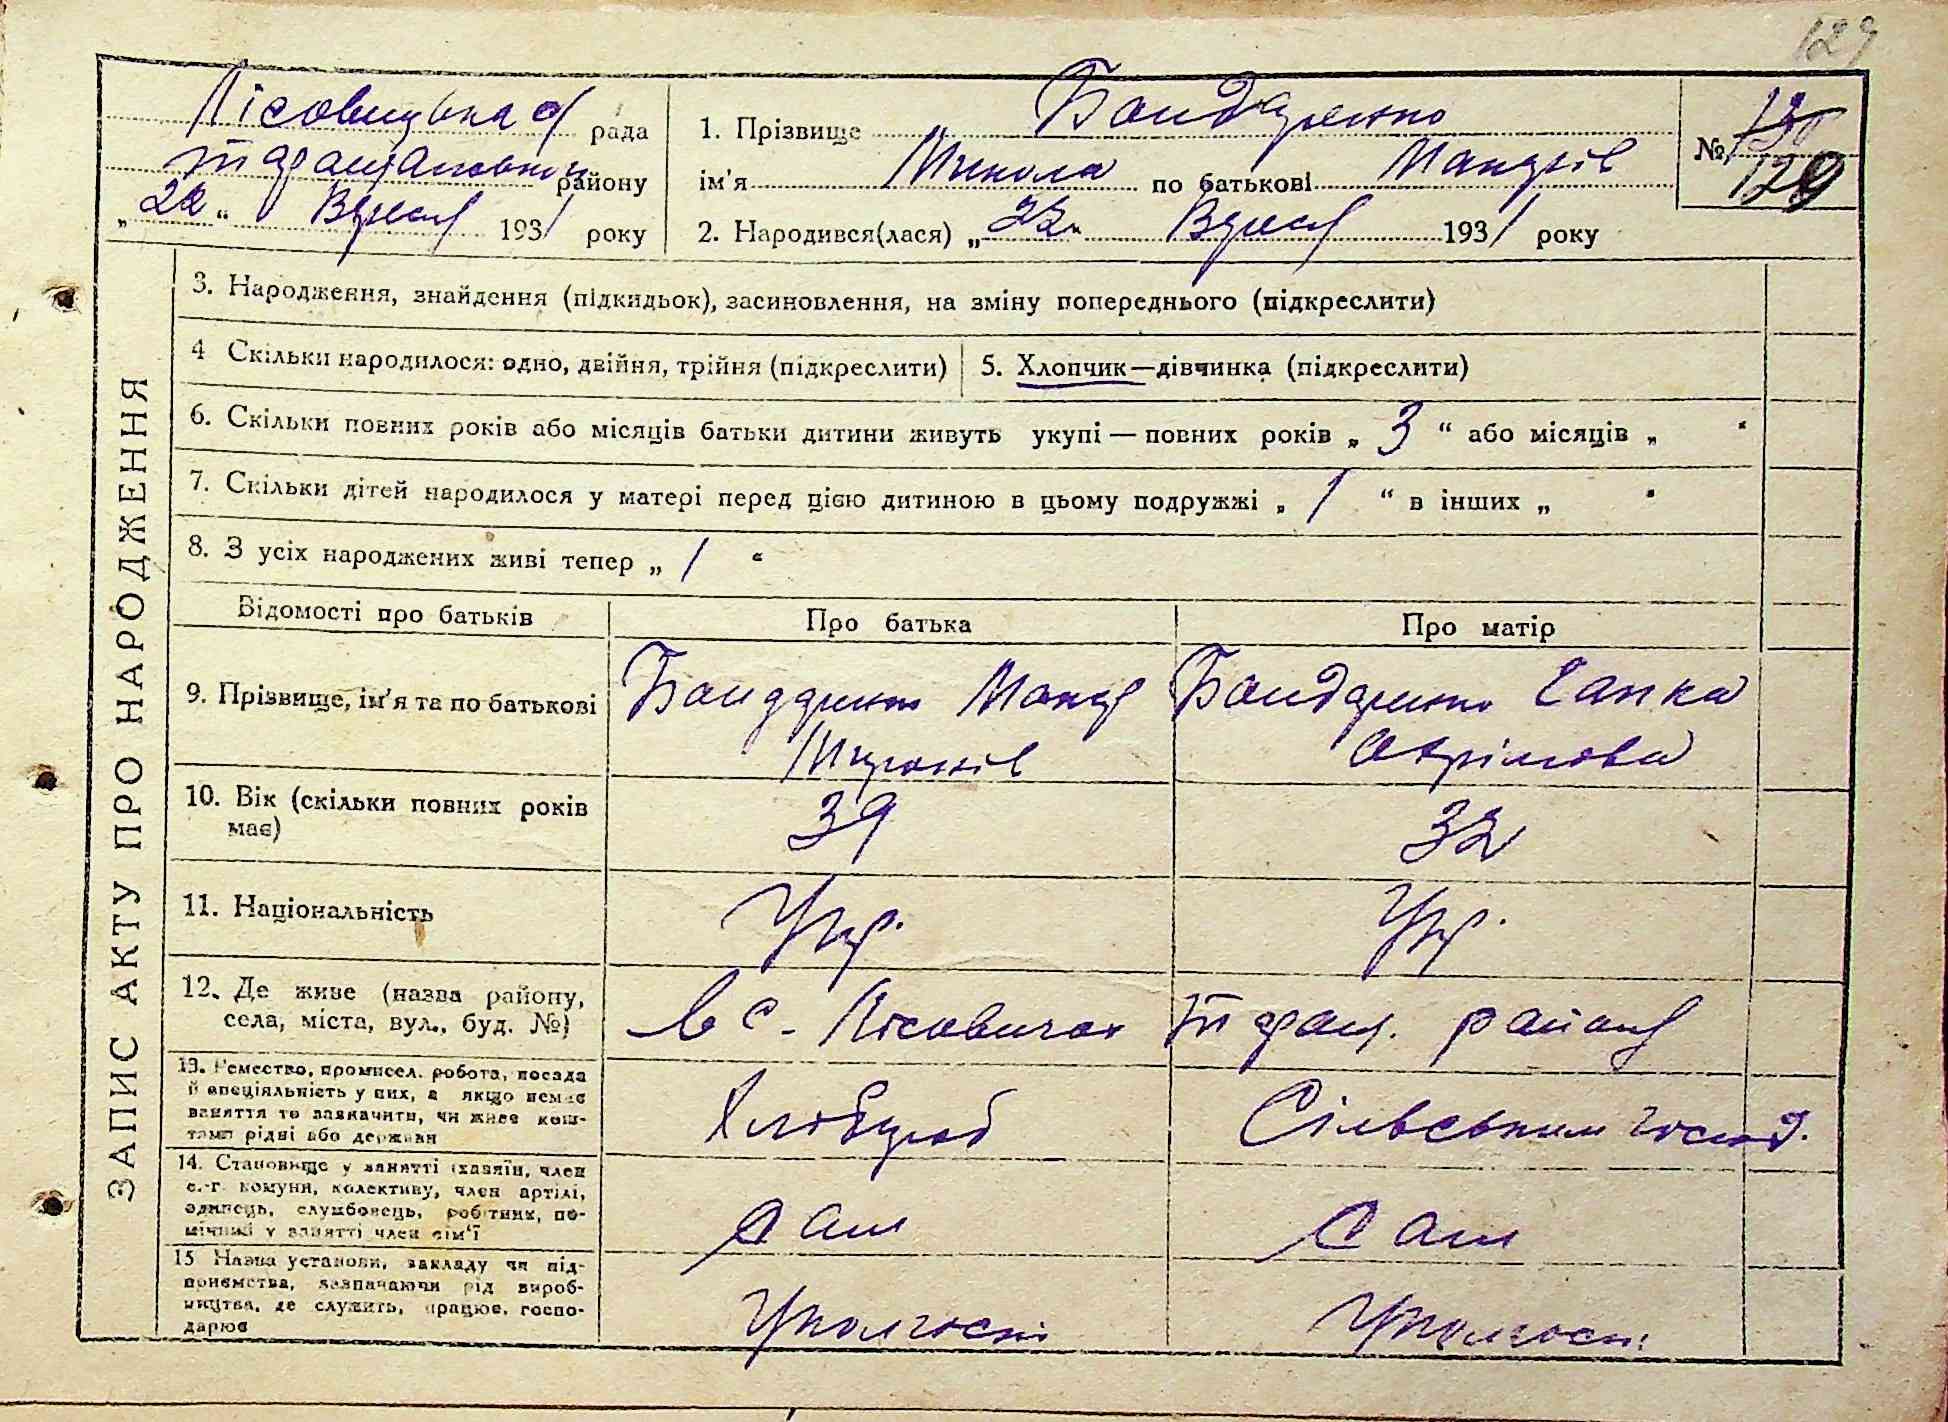 129
Лісовицька с/ рада
Таращанськ району
„22“ Вересня 1931 року
1. Прізвище Бондаренко
ім'я Микола по батькові Мандрів
2. Народився(лася) „22“ Вересня 1931 року
№ 130
129
ЗАПИС АКТУ ПРО НАРОДЖЕННЯ
3. Народження, знайдення (підкидьок), засиновлення, на зміну попереднього (підкреслити)
4 Скільки народилося: одно, двійня, трійня (підкреслити)
5. Хлопчик—дівчинка (підкреслити)
6. Скільки повних років або місяців батьки дитини живуть укупі — повних років „ 3 “ або місяців „ “
7. Скільки дітей народилося у матері перед цією дитиною в цьому подружжі „ 1 “ в інших „ “
8. З усіх народжених живі тепер „ 1 “
Відомості про батьків Про батька Про матір
9. Прізвище, ім'я та по батькові
Бондаренко
Миронів
Бондаренко Ганна
10. Вік (скільки повних років
має)
39
32
11. Національність
Укр.
Укр.
12. Де живе (назва району,
села, міста, вул., буд. №)
в с. Лісовичах Таращ. району
13. Ремество, промисел. робота, посада
й спеціяльність у них, а якщо немає
заняття то зазначити, чи живе кош-
тами рідні або держави
Хлібороб
Сільським господ.
14. Становище у занятті (хазяїн, член
с.-г. комуни, колективу, член артілі,
одинець, службовець, робітник, по-
мічний у занятті член сім'ї
сам
сам
15 Назва установи, закладу чи під-
приємства, зазначаючи рід вироб-
ництва, де служить, працює, госпо-
дарює
У колгоспі
У колгоспі